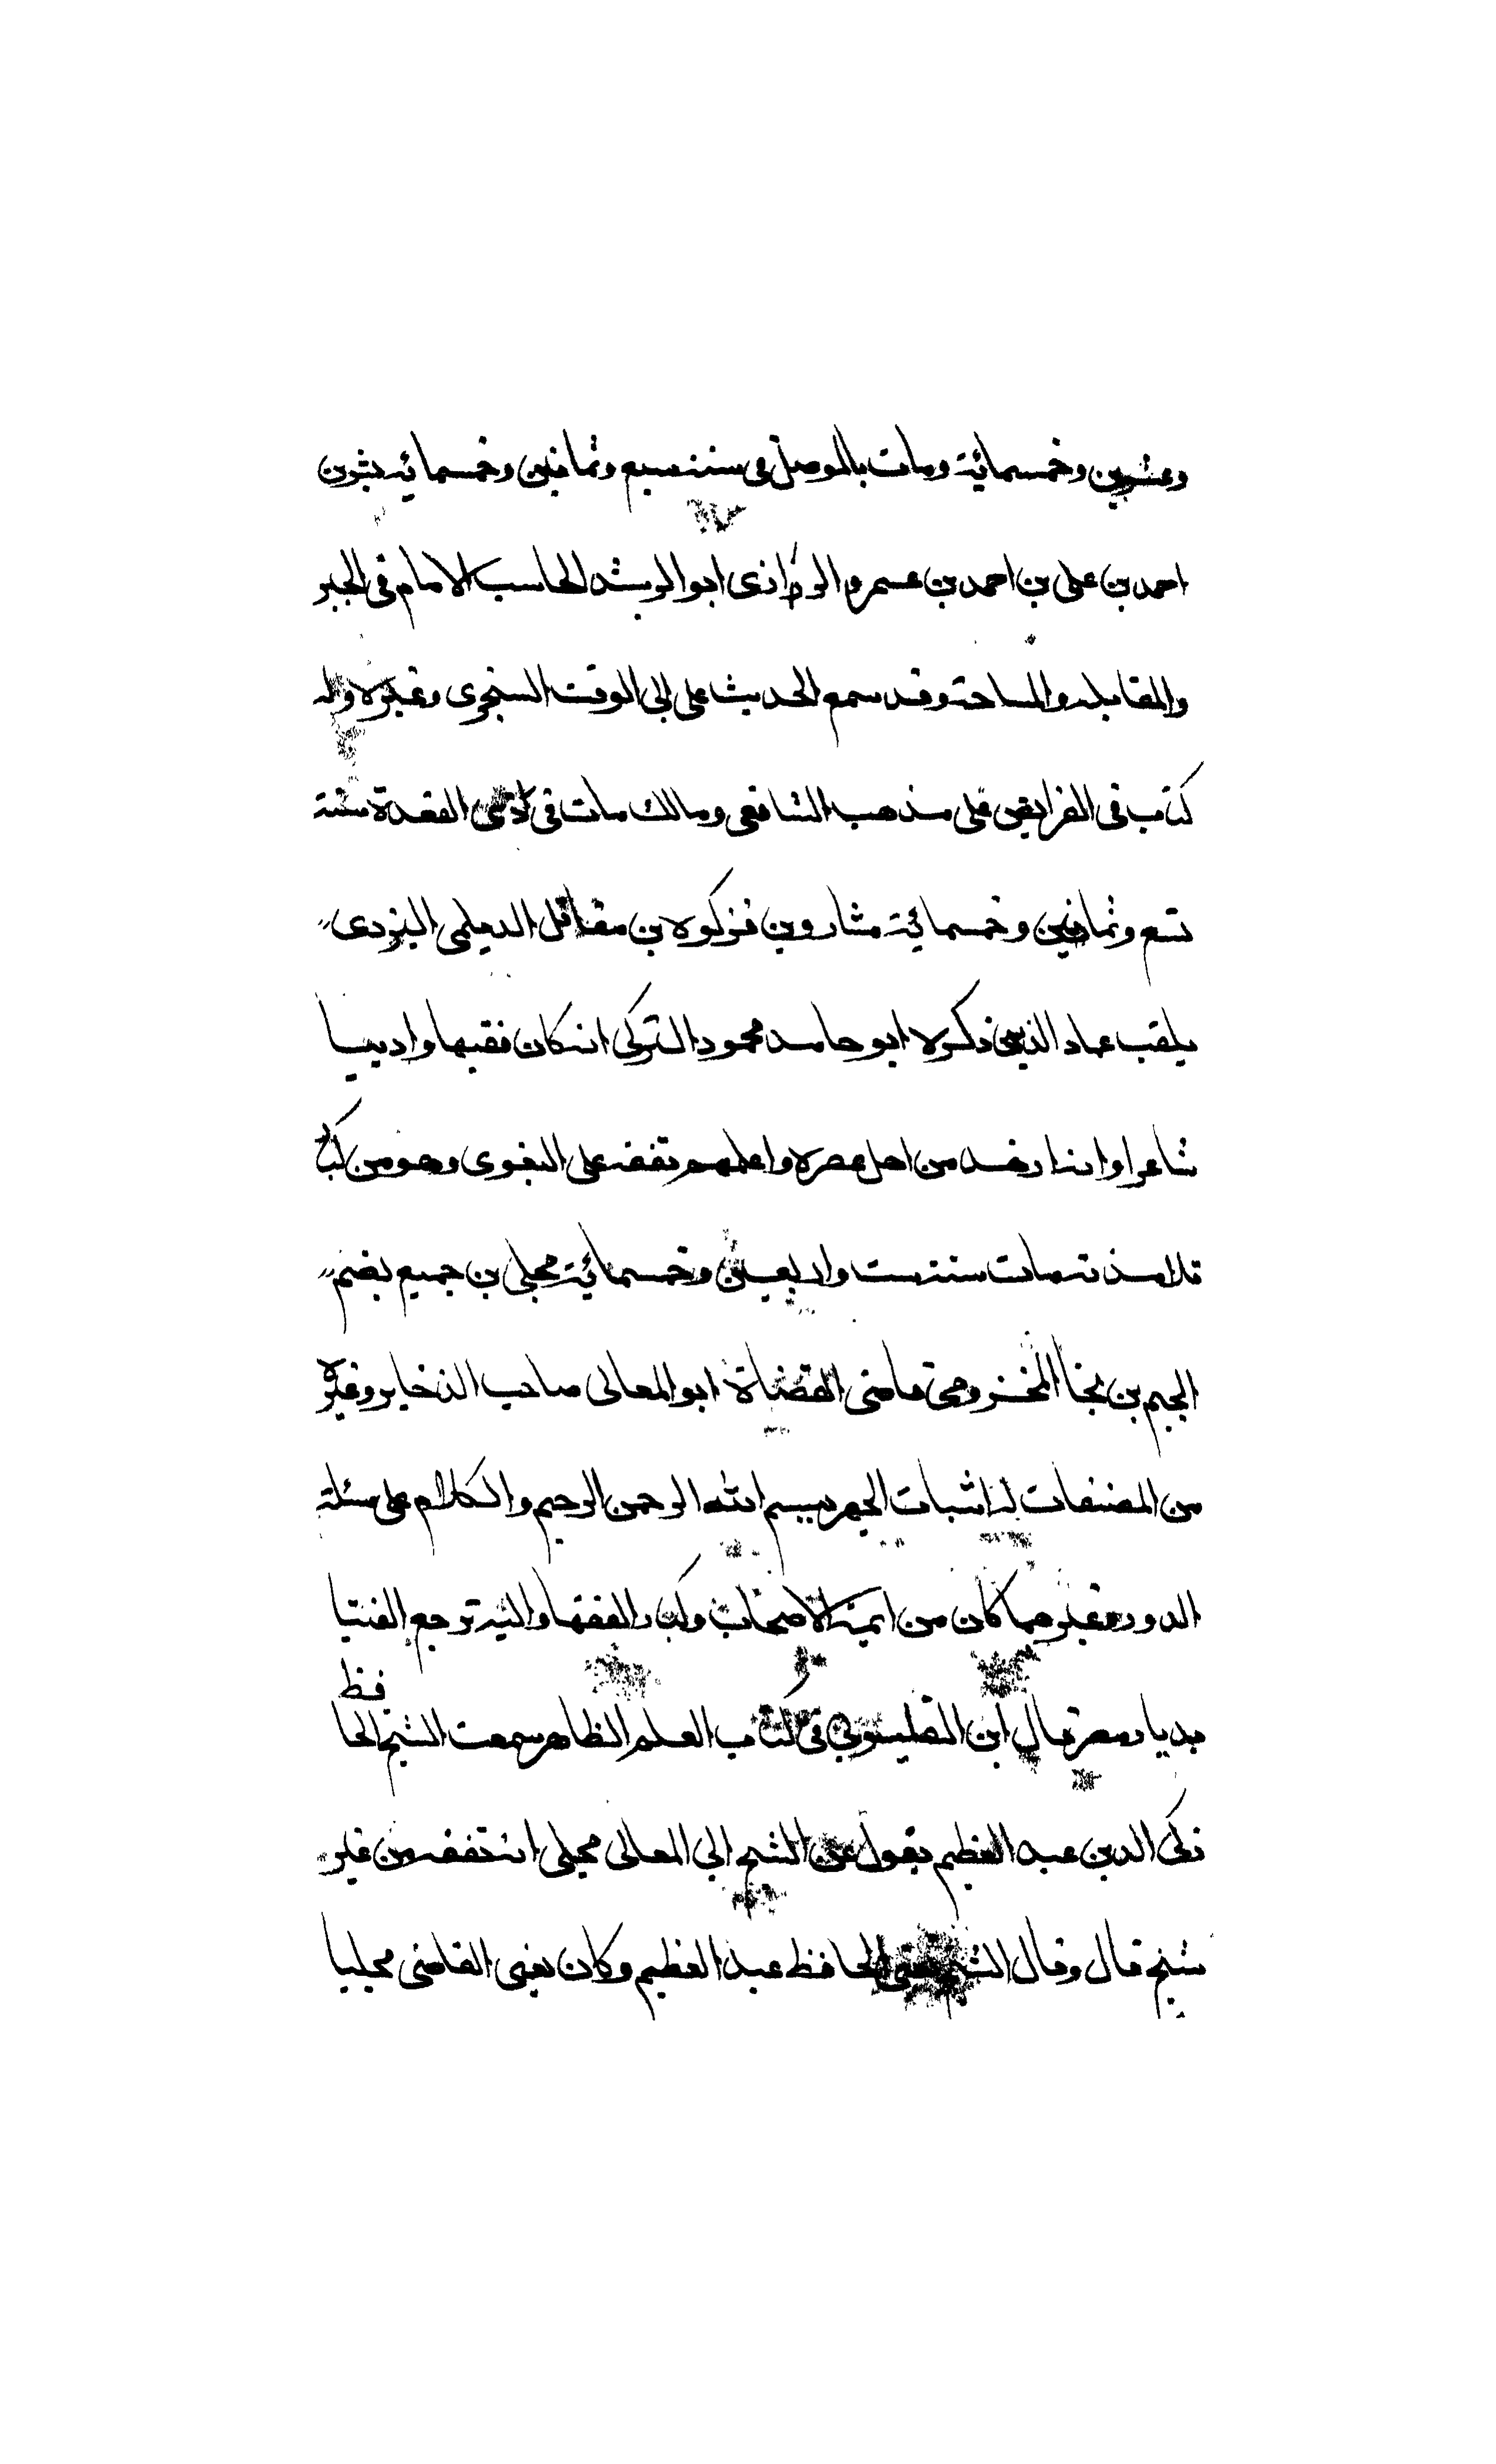 وعشرين وخمسمائة ومات بالموصل فى سنة سبع وثمانين وخمسمائه مبشر بن
احمد بن على بن احمد بن عمرو الرازى ابوالرشد الحاسب الامام فى الجبر
والمقابله والمساحة وقد سمع الحديث على ابى الوقت السنجرى وغيره وله
كتاب فى الفرايض على مذهب الشافعى ومالك مات فى ذى القعدة سنة
تسع وثمانين وخمسمائة مشار وبن فزكوه بن مقاتل الديلمى اليزدى
يلقب عماد الذين ذكره ابو حامد محمود التركى انه كان فقيها واديبا
شاعرا وانه ازهد من اهل عصره واعلمهم تفقه على البغوى وهو من كبار
تلامذته مات سنة ست واربعين وخمسمائة مجلى بن جميع بضم
الجيم بن نجا المخزومى قاضى القضاة ابو المعالى صاحب الذخاير وغيره
من المصنفات له اثبات الجهر ببسم الله الرحمن الرحيم والكلام على مسئلة
الدور وغيرهما كان من ايمة الاصحاب وكبار الفقها واليه ترجع الفتيا
بديار مصر قال ابن القليوبى فى كتاب العلم الظاهر سمعت الشيخ الحافظ
زكى الدين عبد العظيم يقول عن الشيخ ابى المعالى مجلى انه تفقه من غير
شيخ قال وقال الشيخ يعنى الحافظ عبد العظيم وكان يعنى القاضى مجليا